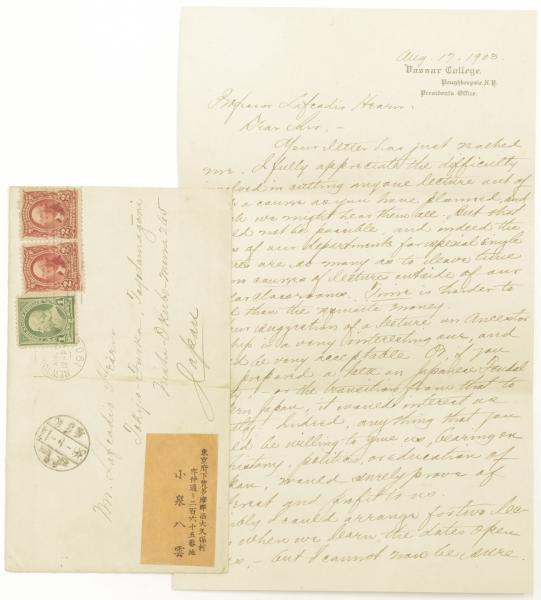 Aug. 17. 1903.
Vassar College,
Poughkeepsie, N.Y.
President's Office.
Professor Lafcadio Hearn,
Dear Sir, -
Your letter has just reached
me. I fully appreciate the difficulty
in cutting any one lecture out of
a course as you have planned, and
we might hear them all. But that
not be possible, and indeed the
of our departments for special single
are so many as to leave time
courses of lecture outside of our
classrooms. Time is harder to
than the requisite money.
suggestion of a lecture on Ancestor
is a very interesting one, and
be very acceptable. Or, if you
a talk on Japanese feudal
, - or the transition from that to
Japan, it would interest us
Indeed, anything that you
would be willing to give us, bearing on
history, politics, or education of
would surely prove of
and profit to us.
I could arrange for two lec
when we learn the dates open
, - but I cannot now be sure.
Mr. Lafcadio Hearn
Tokyo
265
Japan
東京府下豊多摩郡西大久保村
字仲通り二百六十五番地
小泉八雲